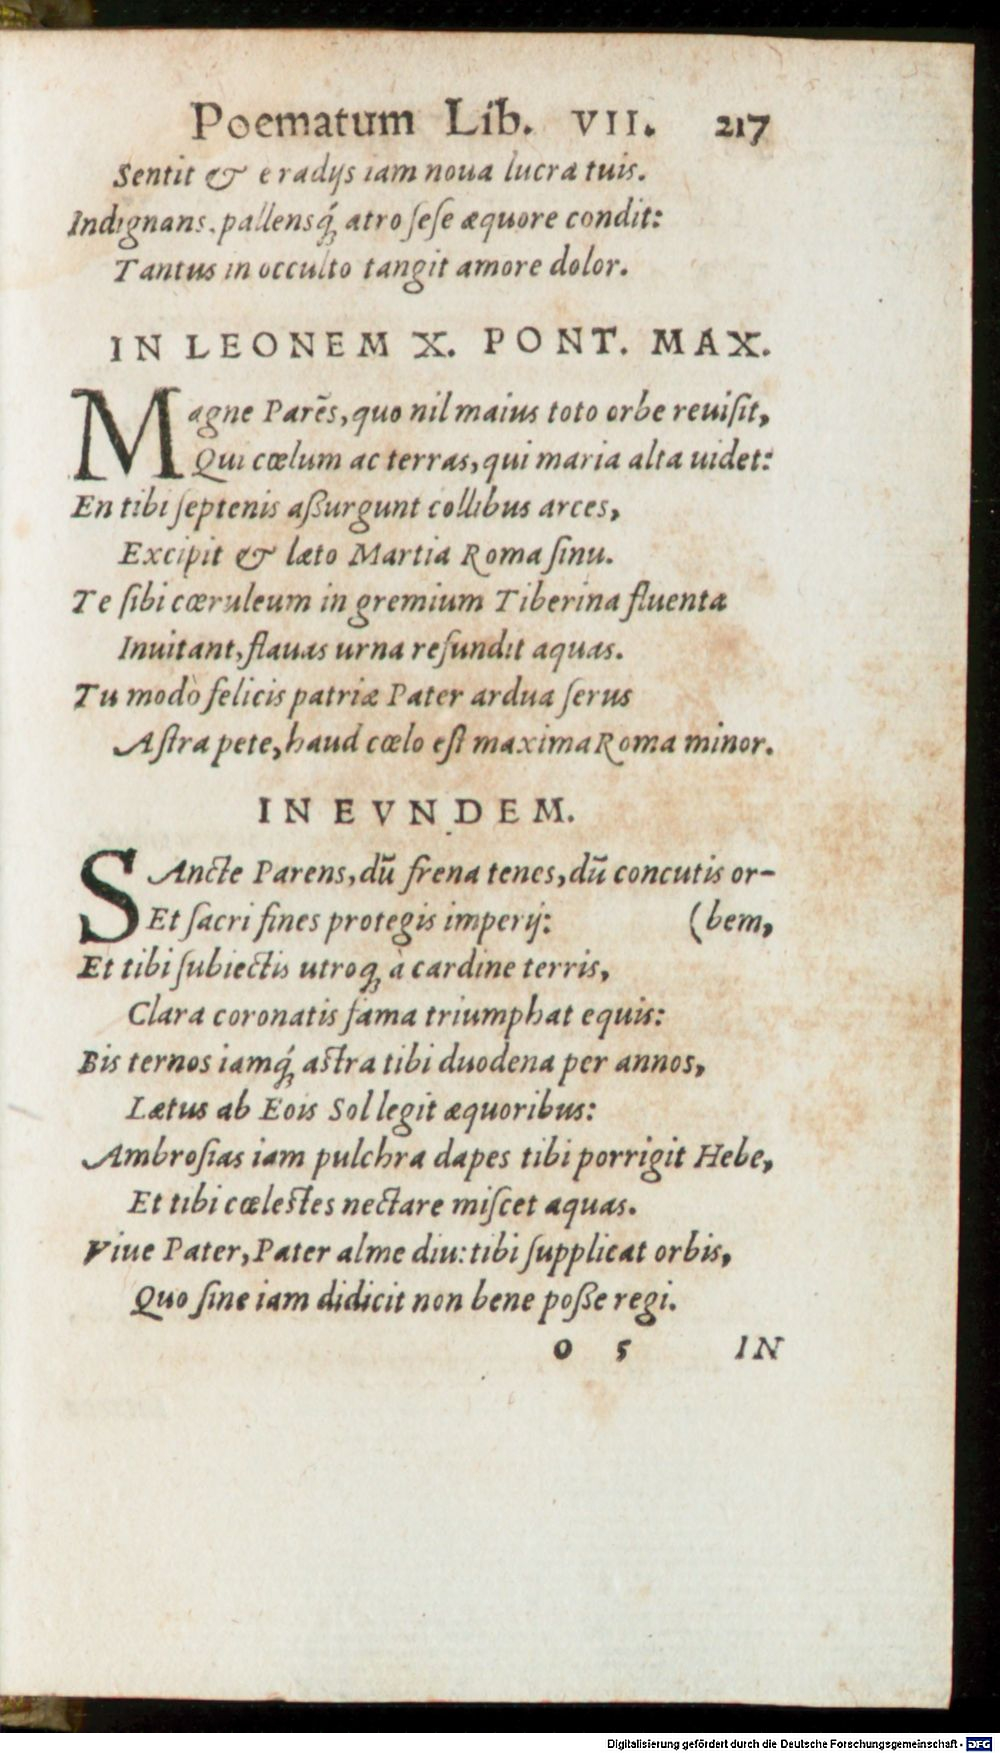 Poematum Lib. VII. 217
Sentit & e radijs iam noua lucra tuis.
Indignans, pallensq́ꝫ atro ſeſe æquore condit:
Tantus in occulto tangit amore dolor.
IN LEONEM X. PONT. MAX.
Magne Parẽs, quo nil maius toto orbe reuiſit,
Qui cœlum ac terras, qui maria alta uidet:
En tibi ſeptenis aßurgunt collibus arces,
Excipit & læto Martia Roma ſinu.
Te ſibi cœruleum in gremium Tiberina fluenta
Inuitant, flauas urna refundit aquas.
Tu modò felicis patriæ Pater ardua ſerus
Aſtra pete, haud cœlo eſt maxima Roma minor.
IN EVNDEM.
SAncte Parens, dũ frena tenes, dũ concutis or-
Et ſacri fines protegis imperij: (bem,
Et tibi ſubiectis utroqꝫ à cardine terris,
Clara coronatis fama triumphat equis:
Bis ternos iamq́ꝫ aſtra tibi duodena per annos,
Lætus ab Eois Sol legit æquoribus:
Ambroſias iam pulchra dapes tibi porrigit Hebe,
Et tibi cœleſtes nectare miſcet aquas.
Viue Pater, Pater alme diu: tibi ſupplicat orbis,
Quo ſine iam didicit non bene poße regi.
O 5 IN
Digitalisierung gefördert durch die Deutsche Forschungsgemeinschaft - DFG